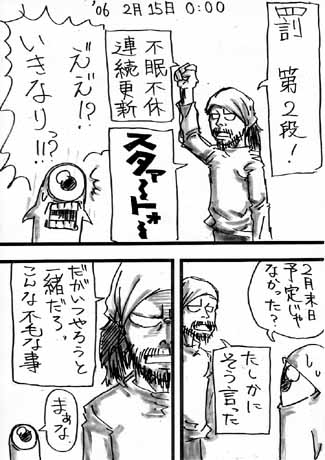 '06 2月15日 0:00
罰 第2段!
不眠不休
連続更新
スタァ〜トォ〜
え゛え゛!?
いきなりっ!!?
2月末日
予定じゃ
なかった?
たしかに
そう言った
だがいつやろうと
一緒だろ、
こんな不毛な事
まぁな。